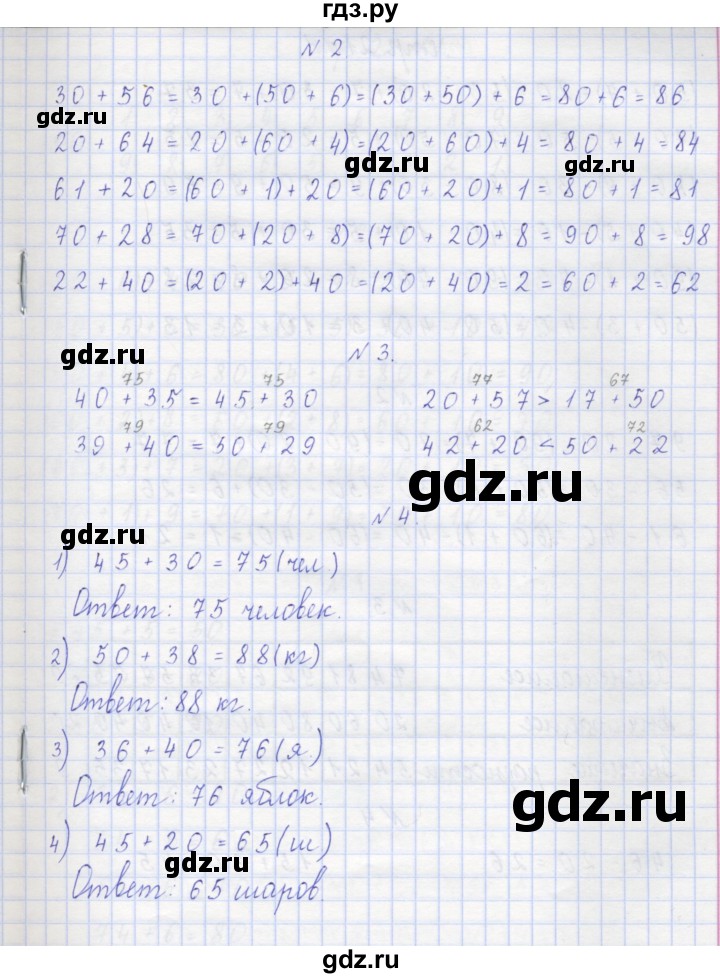 гдз.ру
№ 2
30 + 56 = 30 + (50 + 6) = (30 + 50) + 6 = 80 + 6 = 86
gdz.ru
20 + 64 = 20 + (60 + 4) = (20 + 60) + 4 = 80 + 4 = 84
gdz.ru gdz.ru
61 + 20 = (60 + 1) + 20 = (60 + 20) + 1 = 80 + 1 = 81
70 + 28 = 70 + (20 + 8) = (70 + 20) + 8 = 90 + 8 = 98
22 + 40 = (20 + 2) + 40 = (20 + 40) = 2 = 60 + 2 = 62
gdz.ru
№ 3.
75 75 77 67
40 + 35 = 45 + 30 20 + 57 > 17 + 50
79 79 62 72
39 + 40 = 50 + 29 42 + 20 < 50 + 22
gdz.ru
№ 4.
gdz.ru
1) 45 + 30 = 75 (чел.)
Ответ: 75 человек.
2) 50 + 38 = 88 (кг)
Ответ: 88 кг.
gdz.ru
3) 36 + 40 = 76 (я.)
Ответ: 76 яблок.
gdz.ru
4) 45 + 20 = 65 (ш)
gdz.ru
Ответ: 65 шаров.
gdz.ru